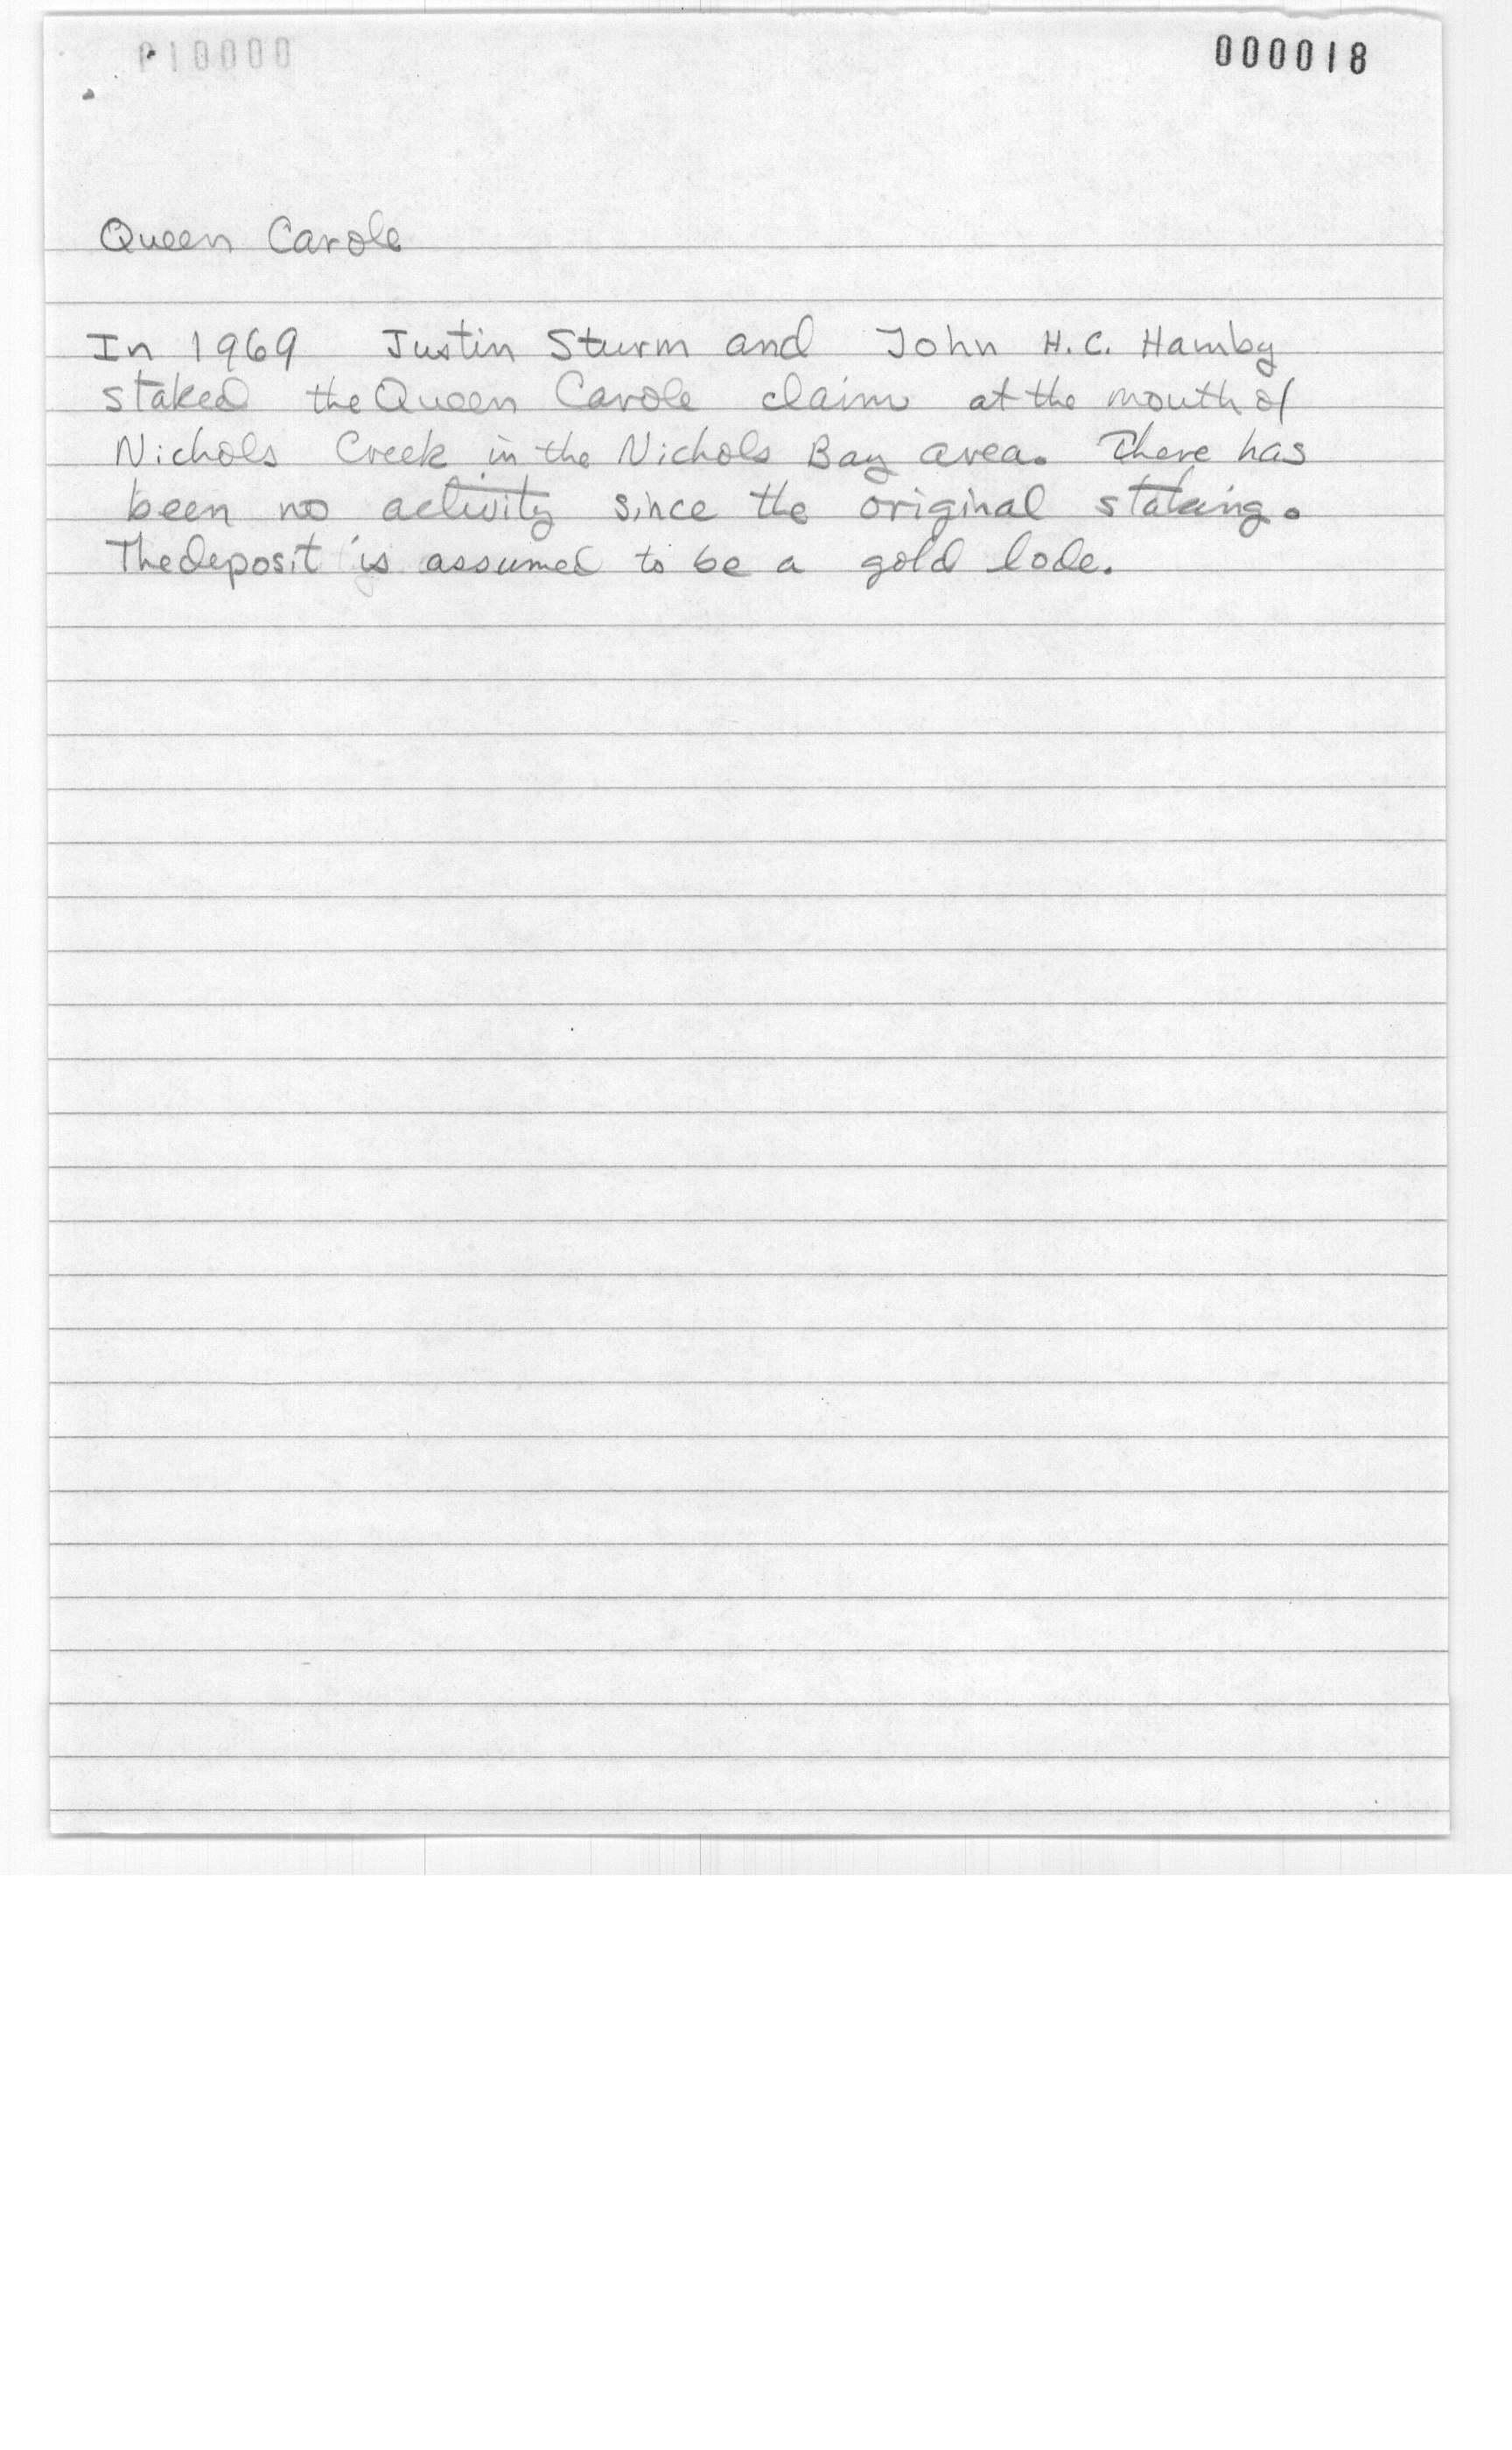 000018
Queen Carole
In 1969 Justin Sturm and John H.C. Hamby
staked the Queen Carole claim at the mouth of
Nichols Creek in the Nichols Bay area. There has
been no activity since the original staking.
The deposit is assumed to be a gold lode.